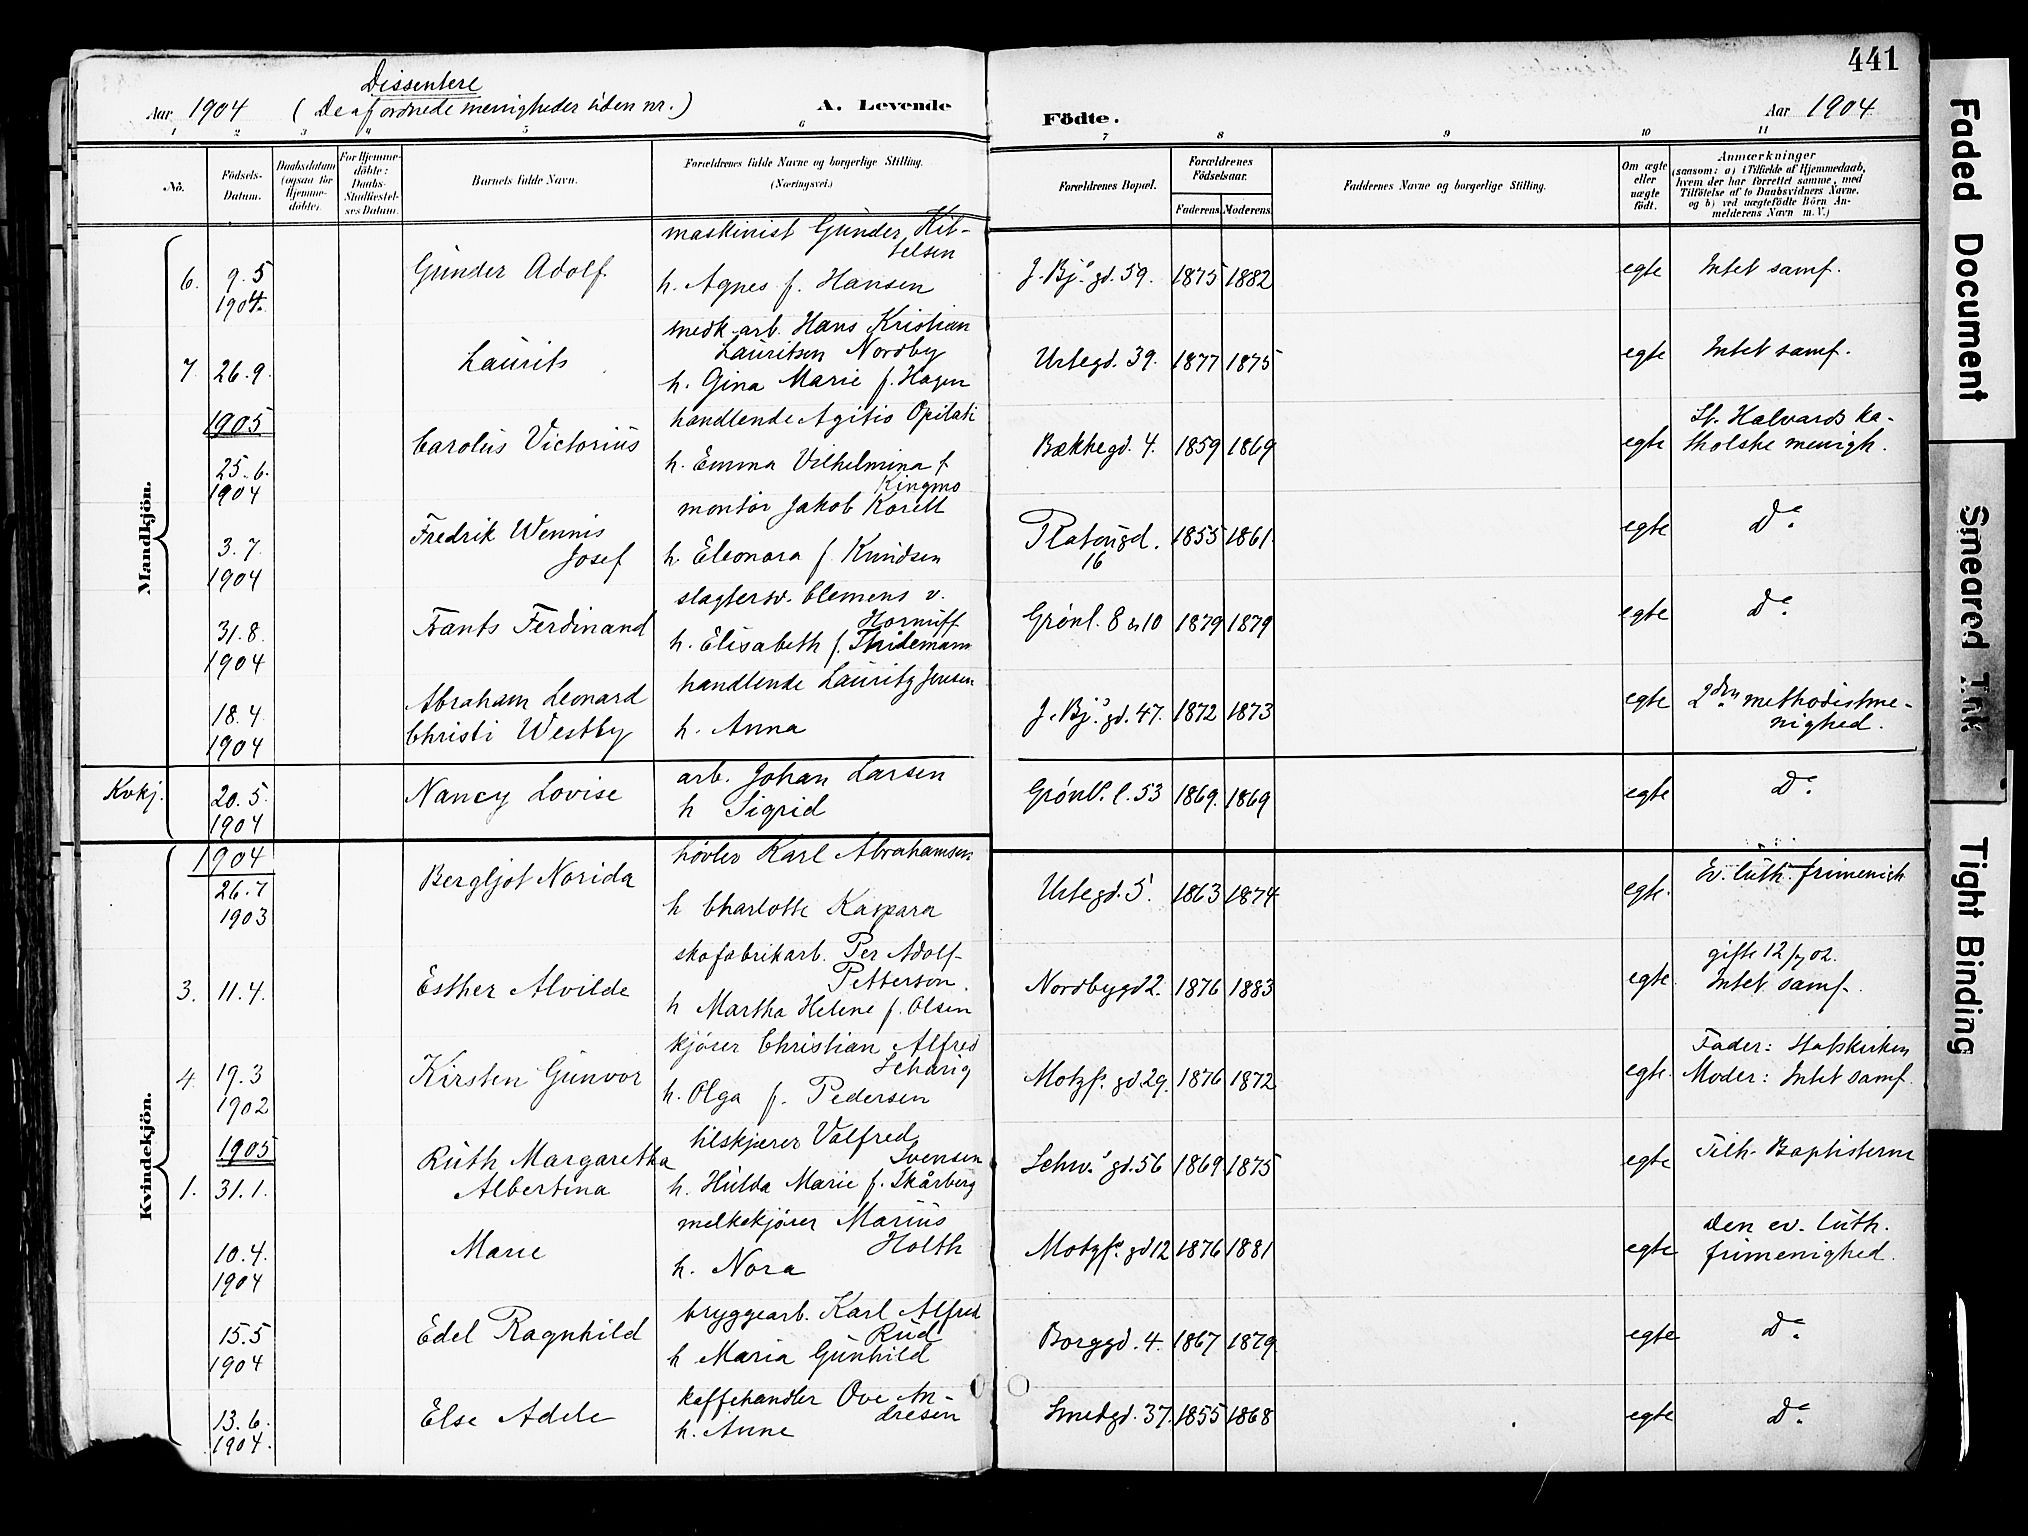 441
Dissentere
Aar 1904 (De af ordnede menigheder uden nr.) A. Levende Födte. Aar 1904
1 2 3 4 5 6 7 8 9 10 11
No. Födsels-Datum. Daabsdatum (ogsaa for Hjemmedöbte). For Hjemmedöbte: Daabs-Stadfæstelses Datum. Barnets fulde Navn. Forældrenes fulde Navne og borgerlige Stilling. (Næringsvei.) Forældrenes Bopæl. Forældrenes Födselsaar. Faderens Moderens Faddernes Navne og borgerlige Stilling. Om ægte eller uægte födt. Anmærkninger (saasom: a) i Tilfælde af Hjemmedaab, hvem der har forrettet samme, med Tilföielse af to Daabsvidners Navne, og b) ved uægtefödte Börn Anmelderens Navn m. V.)
Mandkjön.
6. 9.5 1904. Gunder Adolf. maskinist Gunder Kittelsen
h. Agnes f. Hansen J. Bj.s gd. 59. 1875 1882 egte Intet samf.
7. 26.9. Laurits medk. arb. Hans Kristian
Lauritsen Nordby
h. Gina Marie f. Hagen Urtegd. 39. 1877 1875 egte Intet samf.
1905
25.6. 1904 Carolus Victorius handlende Agitio Opilati
h. Emma Vilhelmina f. Kingmo Bækkegd. 4. 1859 1869 egte St. Halvards katholske menigh.
3.7. 1904 Fredrik Wennis Josef montør Jakob Korell
h. Eleonora f. Knudsen Platougd. 16 1855 1861 egte Do.
31.8. 1904 Frants Ferdinand slagtersv. Clemens v. Hornuff
h. Elisabeth f. Thidemann Grønl. 8 & 10 1879 1879 egte Do.
18.4. 1904 Abraham Leonard
Christi Westby handlende Lauritz Jensen
h. Anna J. Bj.s gd. 47. 1872 1873 egte 2den methodistmenighed.
Kvkj. 20.5. 1904 Nancy Lovise arb. Johan Larsen
h Sigrid Grønl. l. 53 1869. 1869 egte Do.
Kvindekjön.
1904
26.7 1903 Bergljot Norida høvler Karl Abrahamsen
h Charlotte Kaspara Urtegd. 5. 1863 1874 egte. Ev. luth. frimenigh
3. 11.4. Esther Alvilde skofabrikarb. Per Adolf Petterson.
h Martha Helene f. Olsen Nordbygd 2. 1876 1883 egte gifte 12/7 02.
Intet samf.
4. 19.3 1902 Kirsten Gunvor kjører Christian Alfred Scharig
h. Olga f. Pedersen Motzf. gd. 29. 1876 1872 egte. Fader: Statskirken
Moder: Intet samf.
1905
1. 31.1. Ruth Margaretha
Albertina tilskjærer Valfred Svensen
h. Hulda Marie f. Skårberg Schw.s gd. 56 1869 1875 egte Tilh. Baptisterne
10.4. 1904 Marie melkekjører Marius Holth
h. Nora Motzfs. gd 12 1876 1881 egte Den ev. luth.
frimenighed.
15.5 1904 Edel Ragnhild bryggearb. Karl Alfred Rud
h Maria Gunhild Borggd. 4. 1867 1879 egte Do.
13.6. 1904. Else Adele kaffehandler Ove Andresen
h. Anne Smedgd. 37. 1855 1868 egte Do.
Faded Document
Smeared Ink
Tight Binding